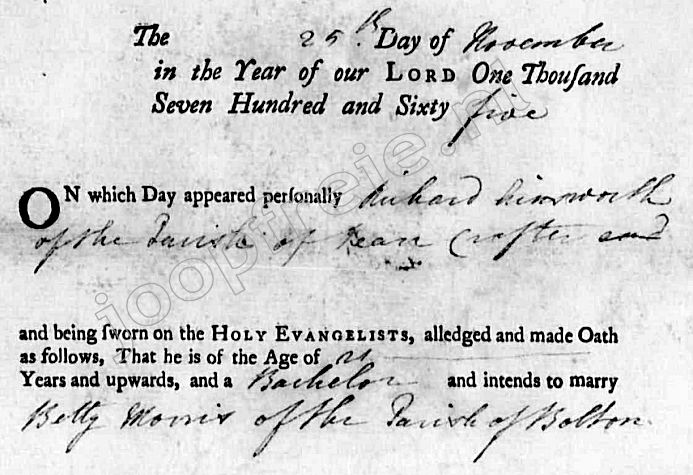 The 25th. Day of November
in the Year of our LORD One Thouſand
Seven Hundred and Sixty five
ON which Day appeared perſonally Richard
of the Parish of Dean Crofter and
and being ſworn on the HOLY EVANGELISTS, alledged and made Oath
as follows, That he is of the Age of 21
Years and upwards, and a Bachelor and intends to marry
Betty Morris of the Parish of Bolton.
jooptreie.nl